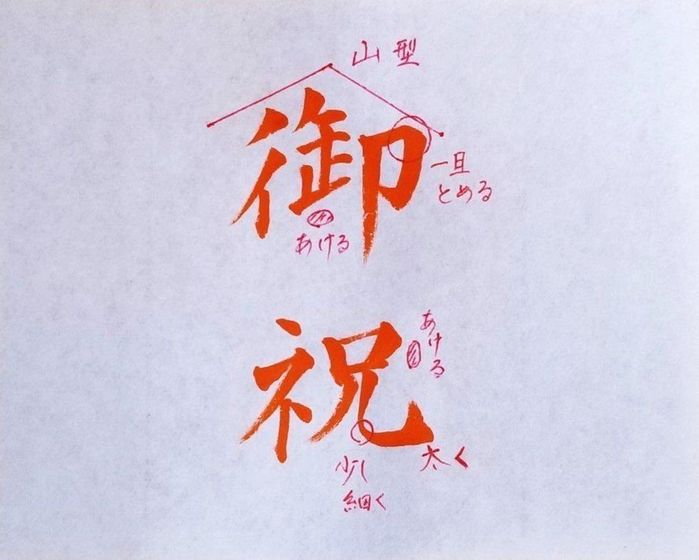 山型
御
一旦
とめる
あける
祝
あける
太く
少し
細く